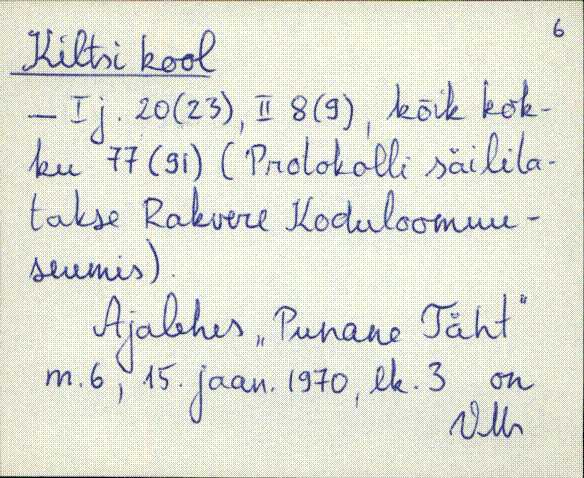 6
Kiltsi kool
— I j. 20(23), II 8(9), kõik kok-
ku 77(91) (Protokolli säilita-
takse Rakvere Koduloomuu-
seumis).
Ajalehes „Punane Täht"
nr. 6, 15. jaan. 1970, lk. 3 on